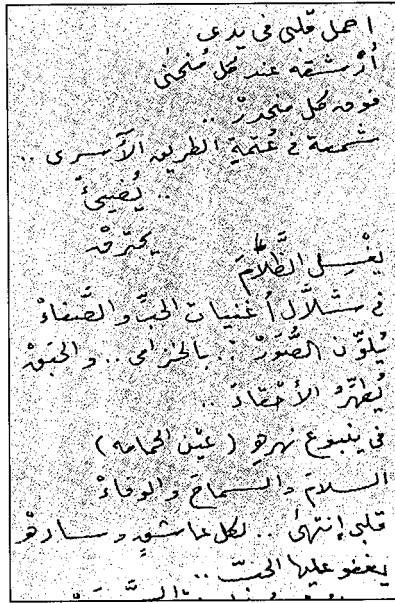 احمل قلبي في يدي
أرشقه عند كل مُنحنى
فوق كل منحدرْ ..
شمعة في عُتمةِ الطريق الآسرى ..
.. يُضيئُ
يحترقْ
يغْسِل الظَّلامَ
في شلَّال أغنيات الحبِّ والصَّفاءْ
يُلوِّن الصُّوَرْ .. بالخزامى .. والحبَقْ
يُطهِّرُ الأحْقادَ ..
في ينبوع نهرهِ ( عيْن الحمامه )
السلامَ والسماحَ والوفاءْ
قلبي إنتهى .. لكل عاشقٍ وساره
يغفو عليها الحبّ ..